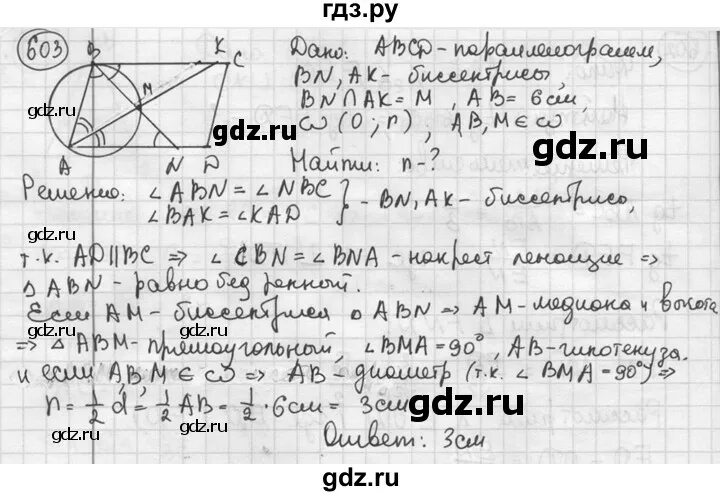 гдз.ру
603
Дано: ABCD - параллелограмм,
BN, AK - биссектрисы,
BN ∩ AK = M, AB = 6 см,
ω (O; r), AB, M ∈ ω
Найти: r - ?
B K C
M
A N D
gdz.ru gdz.ru
Решение: ∠ABN = ∠NBC
∠BAK = ∠KAD } - BN, AK - биссектрисы,
т.к. AD || BC ⇒ ∠CBN = ∠BNA - накрест лежащие ⇒
Δ ABN - равнобедренный.
Если AM - биссектриса Δ ABN ⇒ AM - медиана и высота
⇒ Δ ABM - прямоугольный, ∠BMA = 90°, AB - гипотенуза.
и если A, B, M ∈ ω ⇒ AB - диаметр (т.к. ∠BMA = 90°) ⇒
r = 1/2 d = 1/2 AB = 1/2 · 6 см = 3 см
Ответ: 3 см
gdz.ru